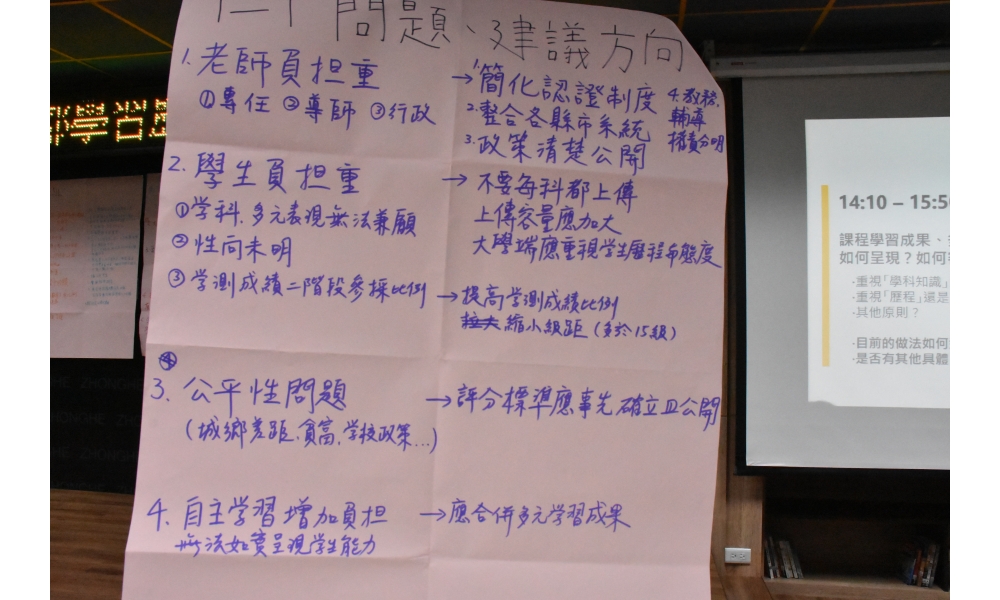 問題、建議方向
1. 老師負担重
①專任 ②導師 ③行政
→1.簡化認證制度
2.整合各縣市系統
3.政策清楚公開
4.教務、
輔導
權責分明
2. 學生負担重
①学科、多元表現無法兼顧
②性向未明
③学測成績二階段參採比例
→不要每科都上傳
上傳容量應加大
大學端應重視学生歷程和態度
→提高学測成績比例
拉大 縮小級距（多於15級）
④
3. 公平性問題
（城鄉差距、貧富、学校政策...）
→評分標準應事先確立且公開
4. 自主学習增加負担
無法如實呈現学生能力
→應合併多元学習成果
學習
14:10 – 15:5
課程學習成果、
如何呈現？如何
·重視「學科知識」
·重視「歷程」還是
·其他原則？
·目前的做法如何
·是否有其他具體
ZHONGHE